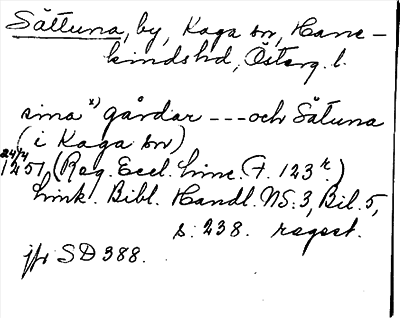 Sättuna, by, Kaga sn, Hane-
kindshd, Österg. l.
sina x) gårdar --- och Sätuna
(i Kaga sn)
24/4
1251 (Reg. Eccl. Linc. F. 123 r.)
Link. Bibl. Handl. NS: 3, Bil. 5,
s. 238. regest.
jfr SD 388.